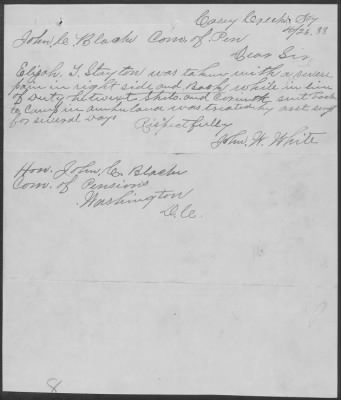 Casey Creek Ky
10/26, 88
John, C Black Com. of Pen
Dear Sir,
Elijah. T. Stayton was taken with a severe
pain in right side and Back while in line
of Duty betwixt Shilo. and Corinth sent back
to Camp in ambulance was treated by asst surg
for several days
Respectfully
John. W. White
Hon. John, C. Black
Com. of Pensions
Washington
D.C.
8